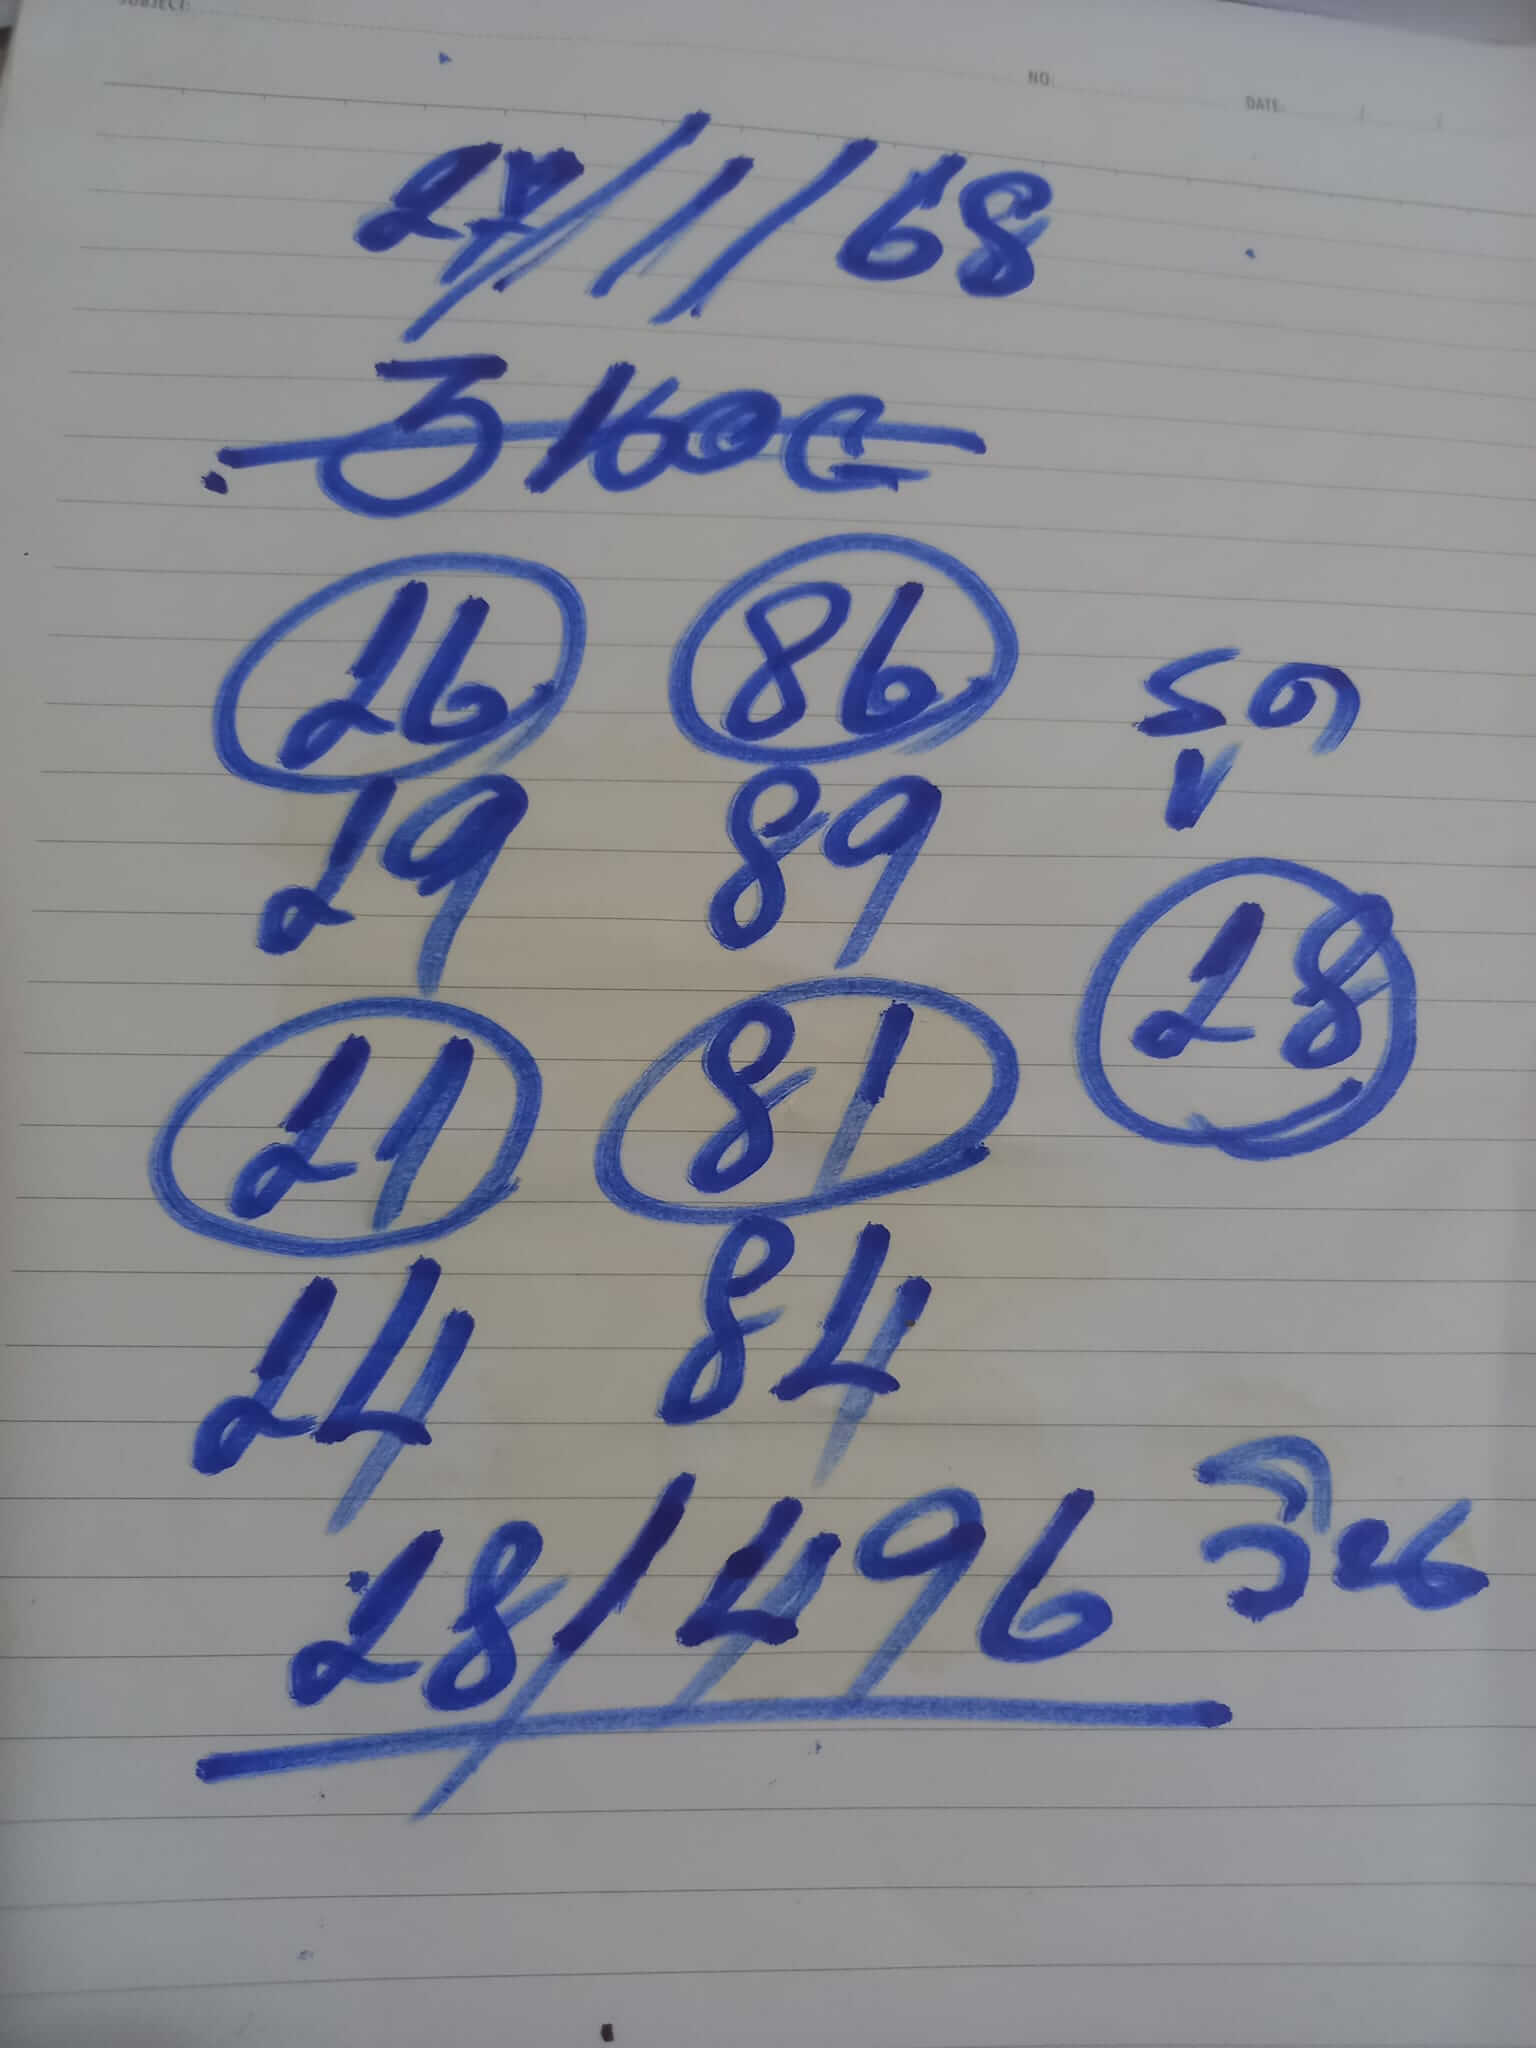 SUBJECT:
NO.
DATE:
27/1/68
26 86
รูด
29 89
28
21 81
24 84
28/496 วิน